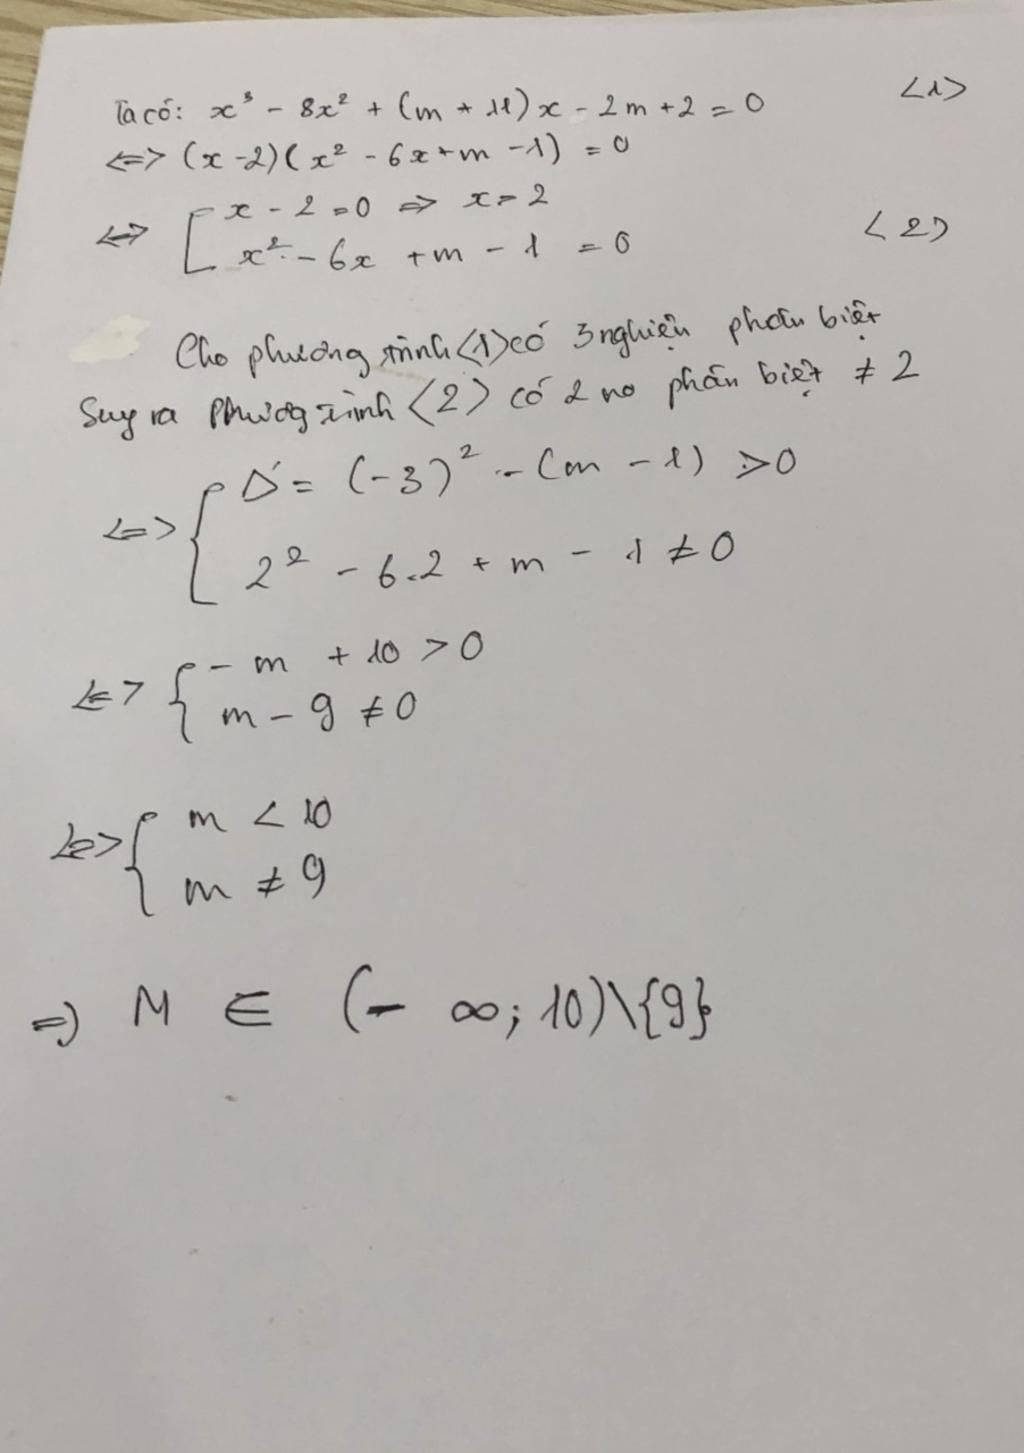 Ta có: x³ - 8x² + (m + 11)x - 2m + 2 = 0 <1>
<=> (x - 2)(x² - 6x + m - 1) = 0
<=> [ x - 2 = 0 => x = 2
x² - 6x + m - 1 = 0 <2>
Cho phương trình <1> có 3 nghiện phân biệt
Suy ra Phương trình <2> có 2 no phân biệt ≠ 2
<=> { Δ' = (-3)² - (m - 1) > 0
2² - 6.2 + m - 1 ≠ 0
<=> { - m + 10 > 0
m - 9 ≠ 0
<=> { m < 10
m ≠ 9
=> M ∈ (- ∞; 10)\{9}